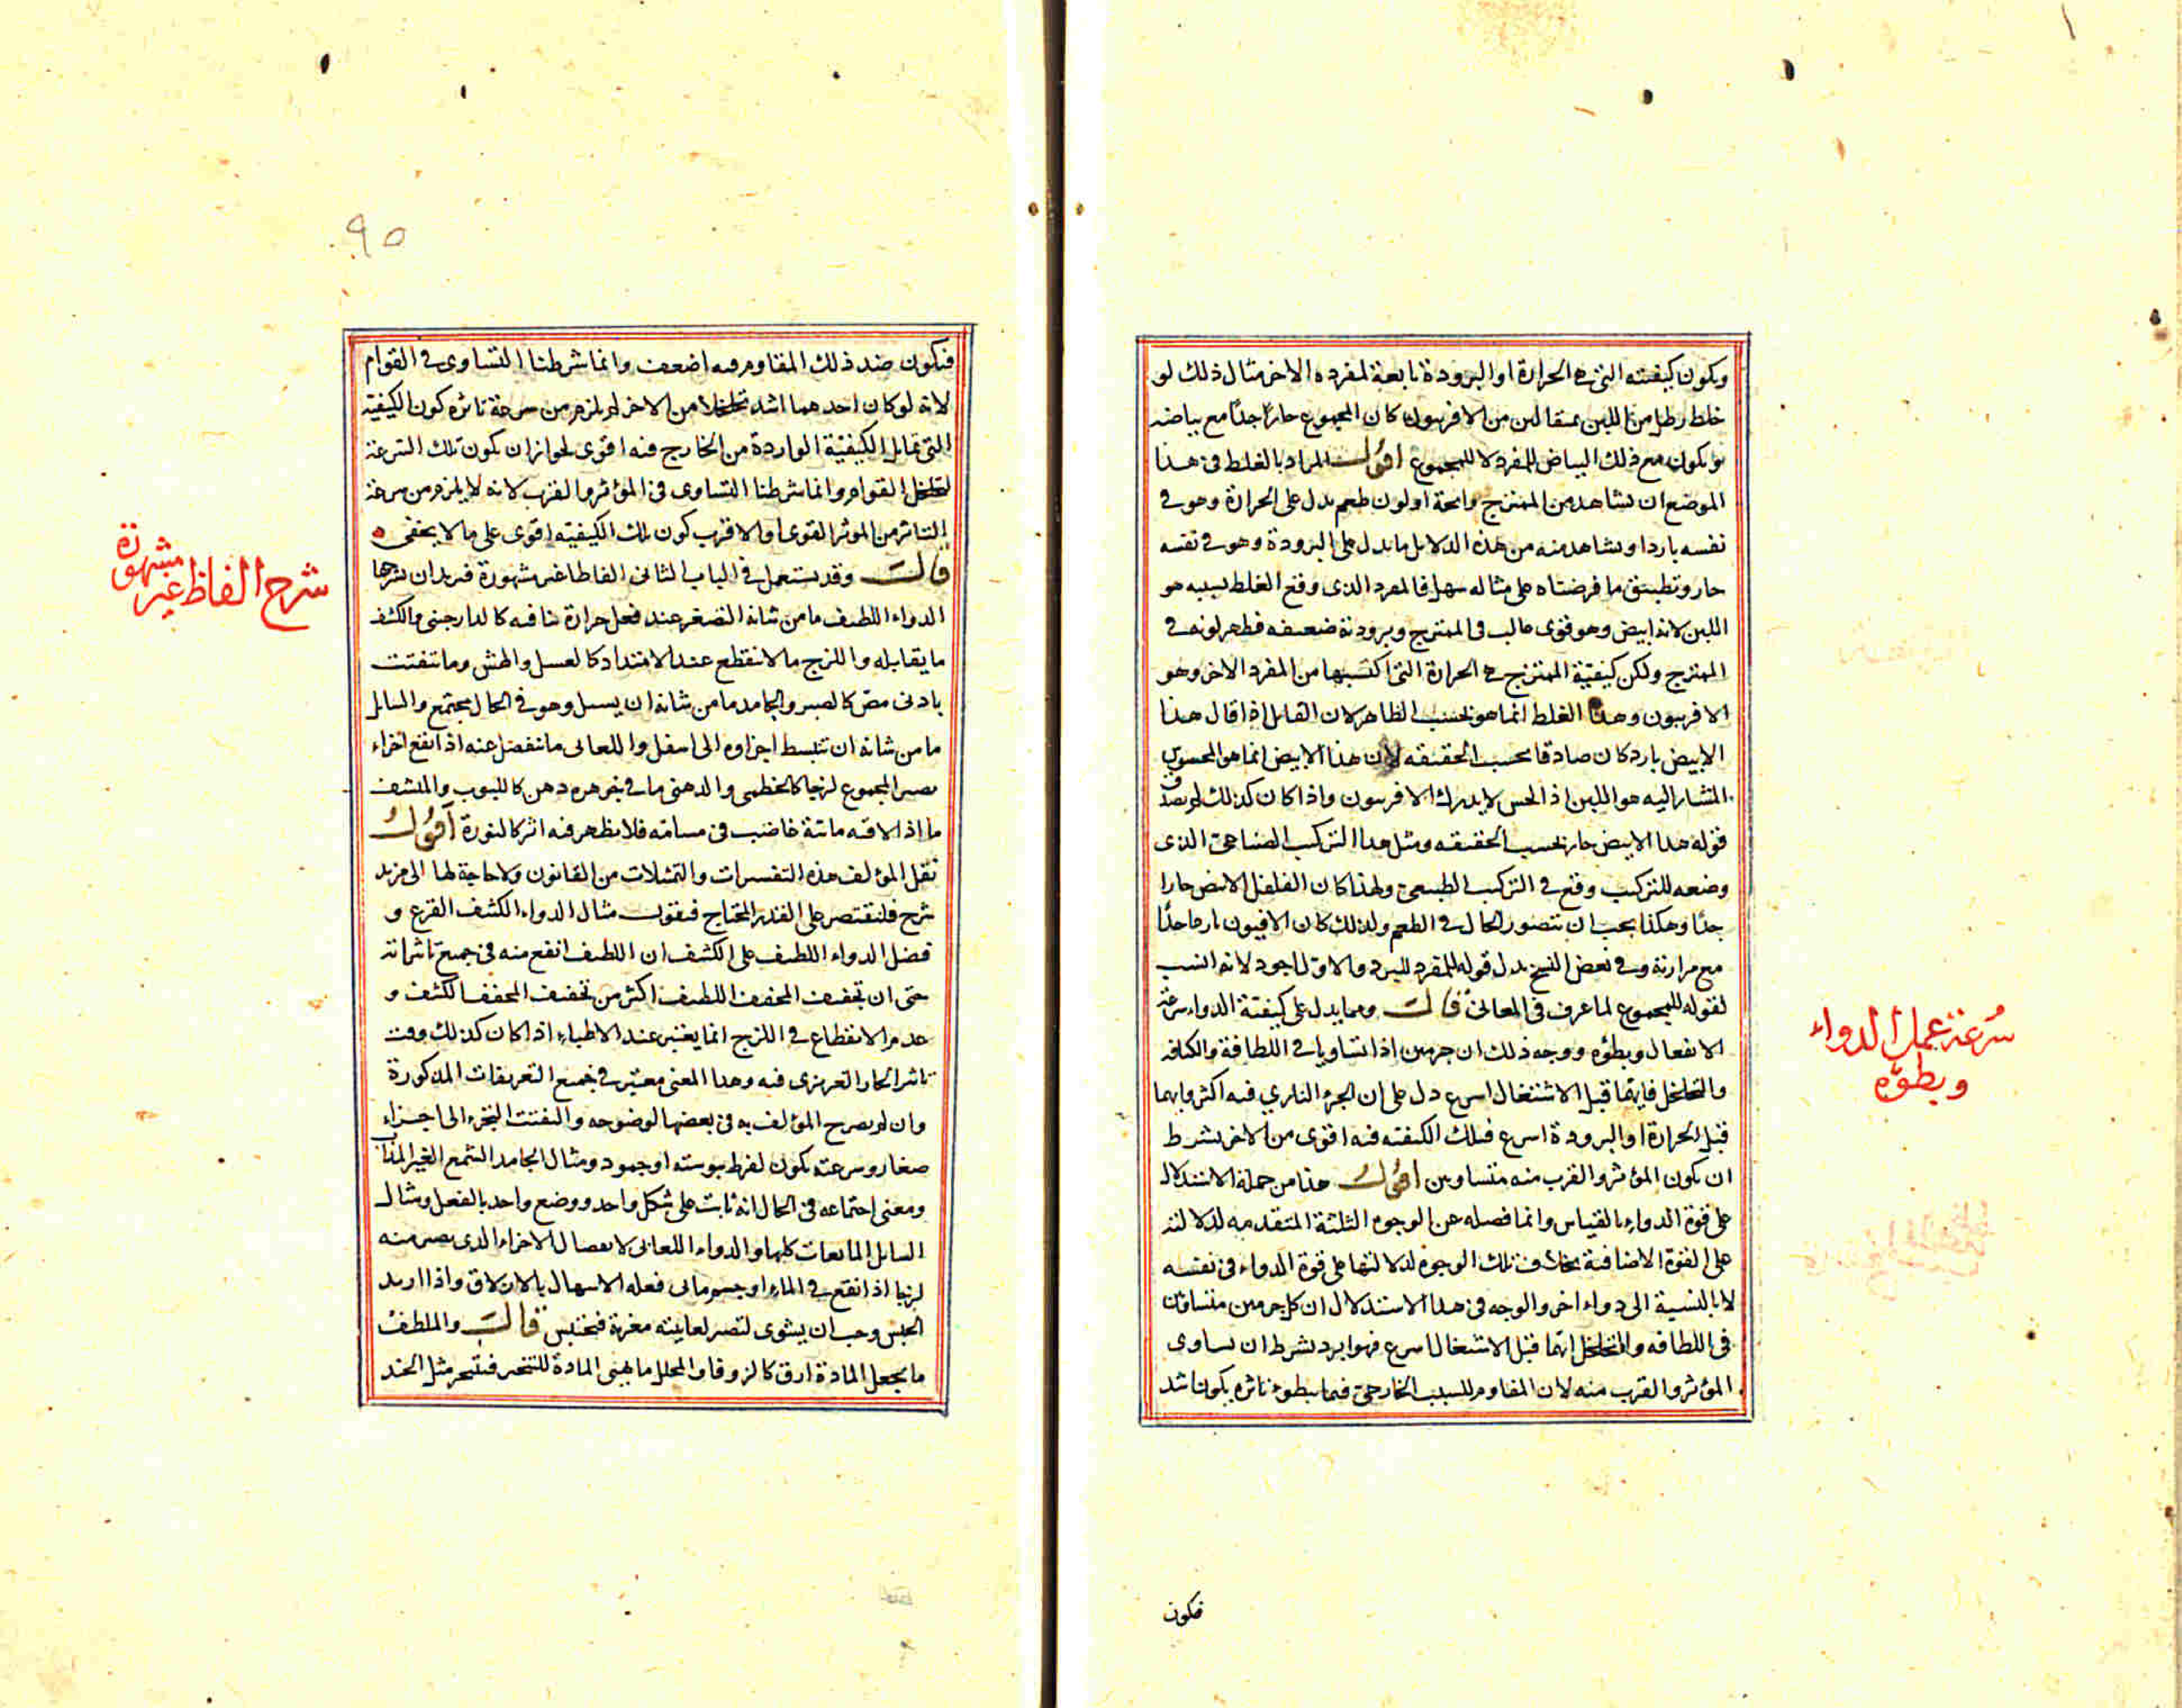 ويكون كيفيته التي هي الحرارة او البرودة تابعة لمفرده الاخر مثال ذلك لو
خلط رطل من اللبن بمثقالين من الافربيون كان المجموع حارا جدا مع بياضه
ويكون مع ذلك البياض للمفرد لا للمجموع اقول المراد بالغلط في هذا
الموضع ان نشاهد من الممتزج رائحة او لون طعم يدل على الحرارة وهو في
نفسه بارد او نشاهد منه من هذه الدلايل ما يدل على البرودة وهو في نفسه
حار وتطبيق ما فرضناه على مثاله سهل فالمفرد الذي وقع الغلط بسببه هو
اللبن لانه ابيض وهو قوي غالب في الممتزج وبرودته ضعيفه فظهر لونه في
الممتزج ولكن كيفية الممتزج هي الحرارة التي اكتسبها من المفرد الاخر وهو
الافربيون وهذا الغلط انما هو بحسب الظاهر لان القايل اذا قال هذا
الابيض بارد كان صادقا بحسب الحقيقه لان هذا الابيض انما هو المحسوس
المشار اليه هو اللبن اذ الحس لا يدرك الافربيون واذا كان كذلك لم يصدق
قوله هذا الابيض حار بحسب الحقيقه ومثل هذا التركيب الصناعي الذي
وضعه للتركيب وقع في التركيب الطبيعي ولهذا كان الفلفل الابيض حارا
جدا وهكذا يجب ان يتصور الحال في الطعم ولذلك كان الافيون باردا جدا
مع مرارته وفي بعض النسخ بدل قوله للمفرد للبرد والاول اجود لانه انسب
لقوله للمجموع لما عرف في المعاني قال ومما يدل على كيفية الدواء سرعة
الانفعال وبطؤه ووجه ذلك ان جرمين اذا تساويا في اللطافة والكثافه
والتخلخل فايهما قبل الاشتغال اسرع دل على ان الجزء الناري فيه اكثر وايهما
قبل الحرارة او البرودة اسرع فتلك الكيفيه فيه اقوى من الاخر بشرط
ان يكون المؤثر والقرب منه متساويين اقول هذا من جملة الاستدلال
على قوة الدواء بالقياس وانما فصله عن الوجوه الثلثة المتقدمه لدلالته
على القوة الاضافية بخلاف تلك الوجوه لدلالتها على قوة الدواء في نفسه
لا بالنسبة الى دواء اخر والوجه في هذا الاستدلال ان كل جرمين متساويين
في اللطافه والتخلخل ايهما قبل الاشتغال اسرع فهو ابرد بشرط ان يساوى
المؤثر والقرب منه لان المقاوم للسبب الخارجي فيما يبطوء تاثره يكون اشد
فيكون
سرعة عمل الدواء
وبطؤه
٩٥
فيكون ضد ذلك المقاوم فيه اضعف وانما شرطنا التساوي في القوام
لانه لو كان احدهما اشد تخلخلا من الاخر لم يلزم من سرعة تاثره كون الكيفية
التي تماثل الكيفية الواردة من الخارج فيه اقوى لجواز ان يكون تلك السرعة
لتخلخل القوام وانما شرطنا التساوي في المؤثر والقرب لانه لا يلزم من سرعة
التاثر من المؤثر القوي او الاقرب كون تلك الكيفية اقوى على ما لا يخفى
قال وقد يستعمل في الباب الثاني الفاظا غير مشهورة فنريد ان نشرحها
الدواء اللطيف ما من شانه التصغر عند فعل حرارتنا فيه كالدارجيني والكثيف
ما يقابله واللزج ما لا ينقطع عند الامتداد كالعسل والهش وما يتفتت
بادنى مس كالصبر والجامد ما من شانه ان يسيل وهو في الحال مجتمع والسايل
ما من شانه ان تنبسط اجزاوه الى اسفل واللعابي ما تنفصل عنه اذا نقع اجزاء
يصير المجموع لزجا كالخطمي والدهني ما في جوهره دهن كاللبوب والمنشف
ما اذا لاقته مائية غاضت في مسامه فلا يظهر فيه اثر كالنورة اقول
نقل المؤلف هذه التفسيرات والتمثيلات من القانون ولا حاجة لها الى مزيد
شرح فلنقتصر على القدر المحتاج فنقول مثال الدواء الكثيف القرع و
فضل الدواء اللطيف على الكثيف ان اللطيف انفع منه في جميع تاثيراته
حتى ان تجفيف المجفف اللطيف اكثر من تجفيف المجفف الكثيف و
عدم الانقطاع في اللزج انما يعتبر عند الاطباء اذا كان كذلك وقت
تاثير الحار الغريزي فيه وهذا المعنى معتبر في جميع التعريفات المذكورة
وان لم يصرح المؤلف به في بعضها لوضوحه والتفتت التجزء الى اجزاء
صغار وسرعته يكون لفرط يبوسته او جموده ومثال الجامد الشمع الغير المذاب
ومعنى اجتماعه في الحال انه ثابت على شكل واحد ووضع واحد بالفعل ومثال
السايل المايعات كلها والدواء اللعابي لانفصال الاجزاء الذي يصير منه
لزجا اذا نقع في الماء او جسم مائي فعله الاسهال بالازلاق واذا اريد
الحبس وجب ان يشوى لتصير لعابيته مغرية فيحتبس قال والملطف
ما يجعل المادة ارق كالزوفا والمحلل ما يهيى المادة للتبخر فيتبخر مثل الجند
شرح الفاظ غير
مشهورة